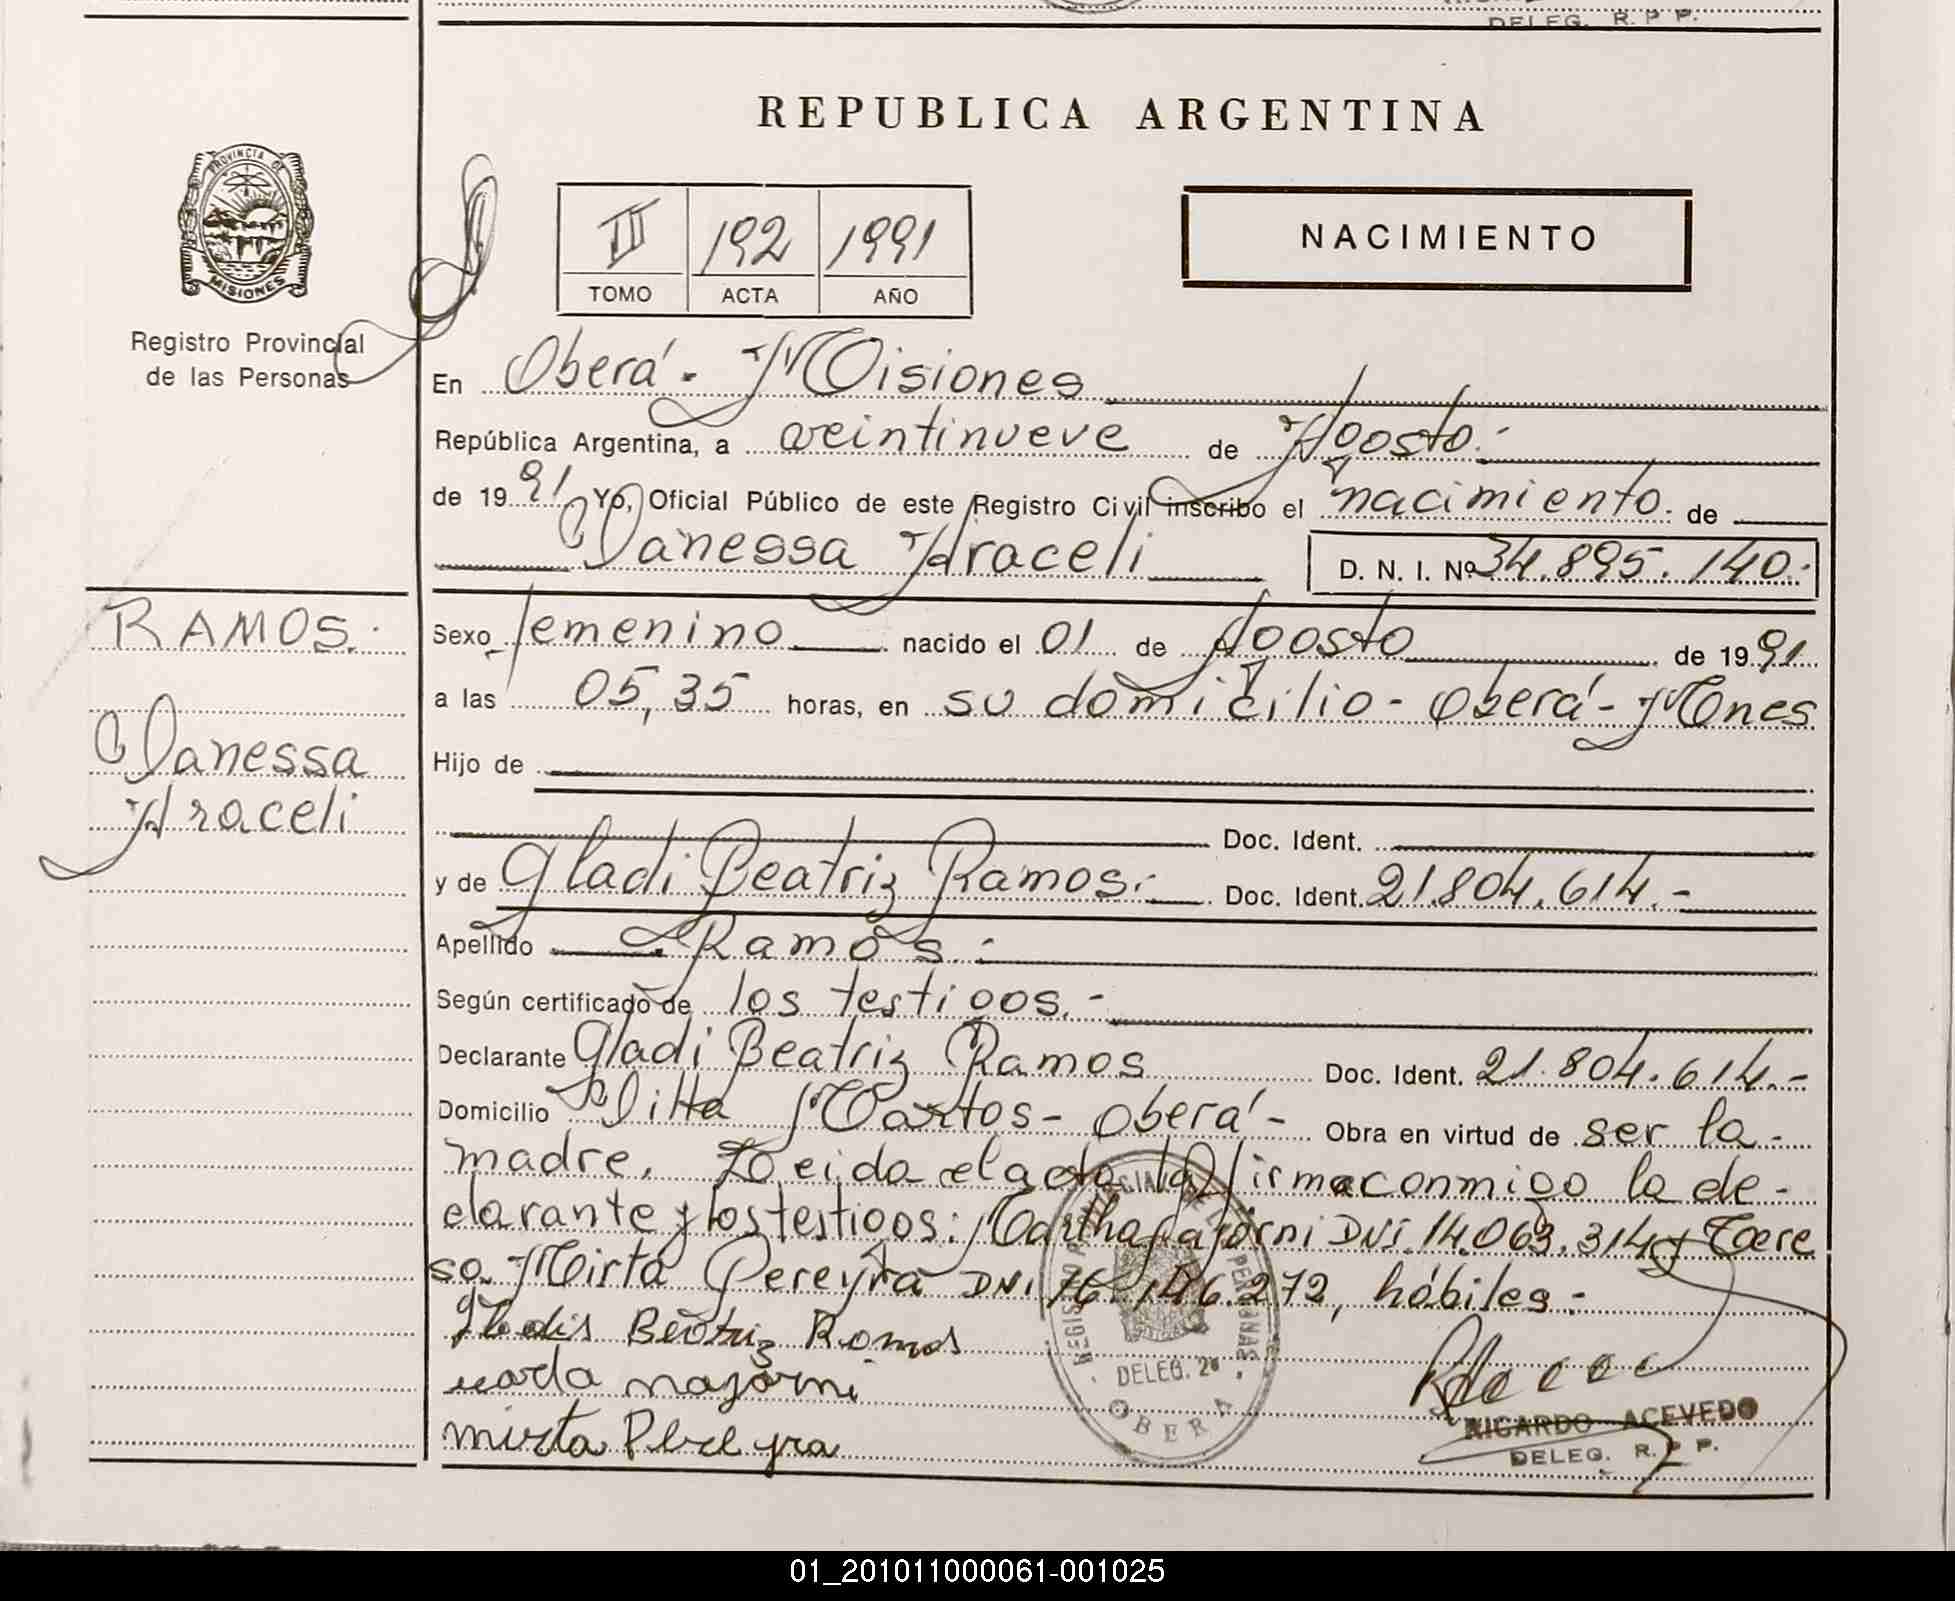 DELEG. R. P. P.
REPUBLICA ARGENTINA
PROVINCIA DE
MISIONES
Registro Provincial
de las Personas
II 192 1991
TOMO ACTA AÑO
NACIMIENTO
En Oberá - Misiones
República Argentina, a veintinueve de Agosto.-
de 1991 Yo, Oficial Público de este Registro Civil inscribo el nacimiento. de
Vanessa Araceli D. N. I. Nº 34.895.140.-
RAMOS.
Vanessa
Araceli
Sexo femenino nacido el 01 de Agosto de 1991
a las 05,35 horas, en su domicilio - Oberá - Mnes
Hijo de
Doc. Ident.
y de Gladi Beatriz Ramos.- Doc. Ident. 21.804.614.-
Apellido Ramos.-
Según certificado de los testigos.-
Declarante Gladi Beatriz Ramos Doc. Ident. 21.804.614.-
Domicilio Villa Martos - Oberá - Obra en virtud de ser la
madre. Leida el acta la firma conmigo la de-
clarante y los testigos: Martha DNI 14.063.314 y Tere
sa Mirta Pereyra DNI 16.146.272, hábiles.-
Gladis Beatriz Ramos
Mirta Pereyra
REGISTRO PROVINCIAL DE LAS PERSONAS
DELEG. 28
OBERA
RICARDO ACEVEDO
DELEG. R. P. P.
01_201011000061-001025